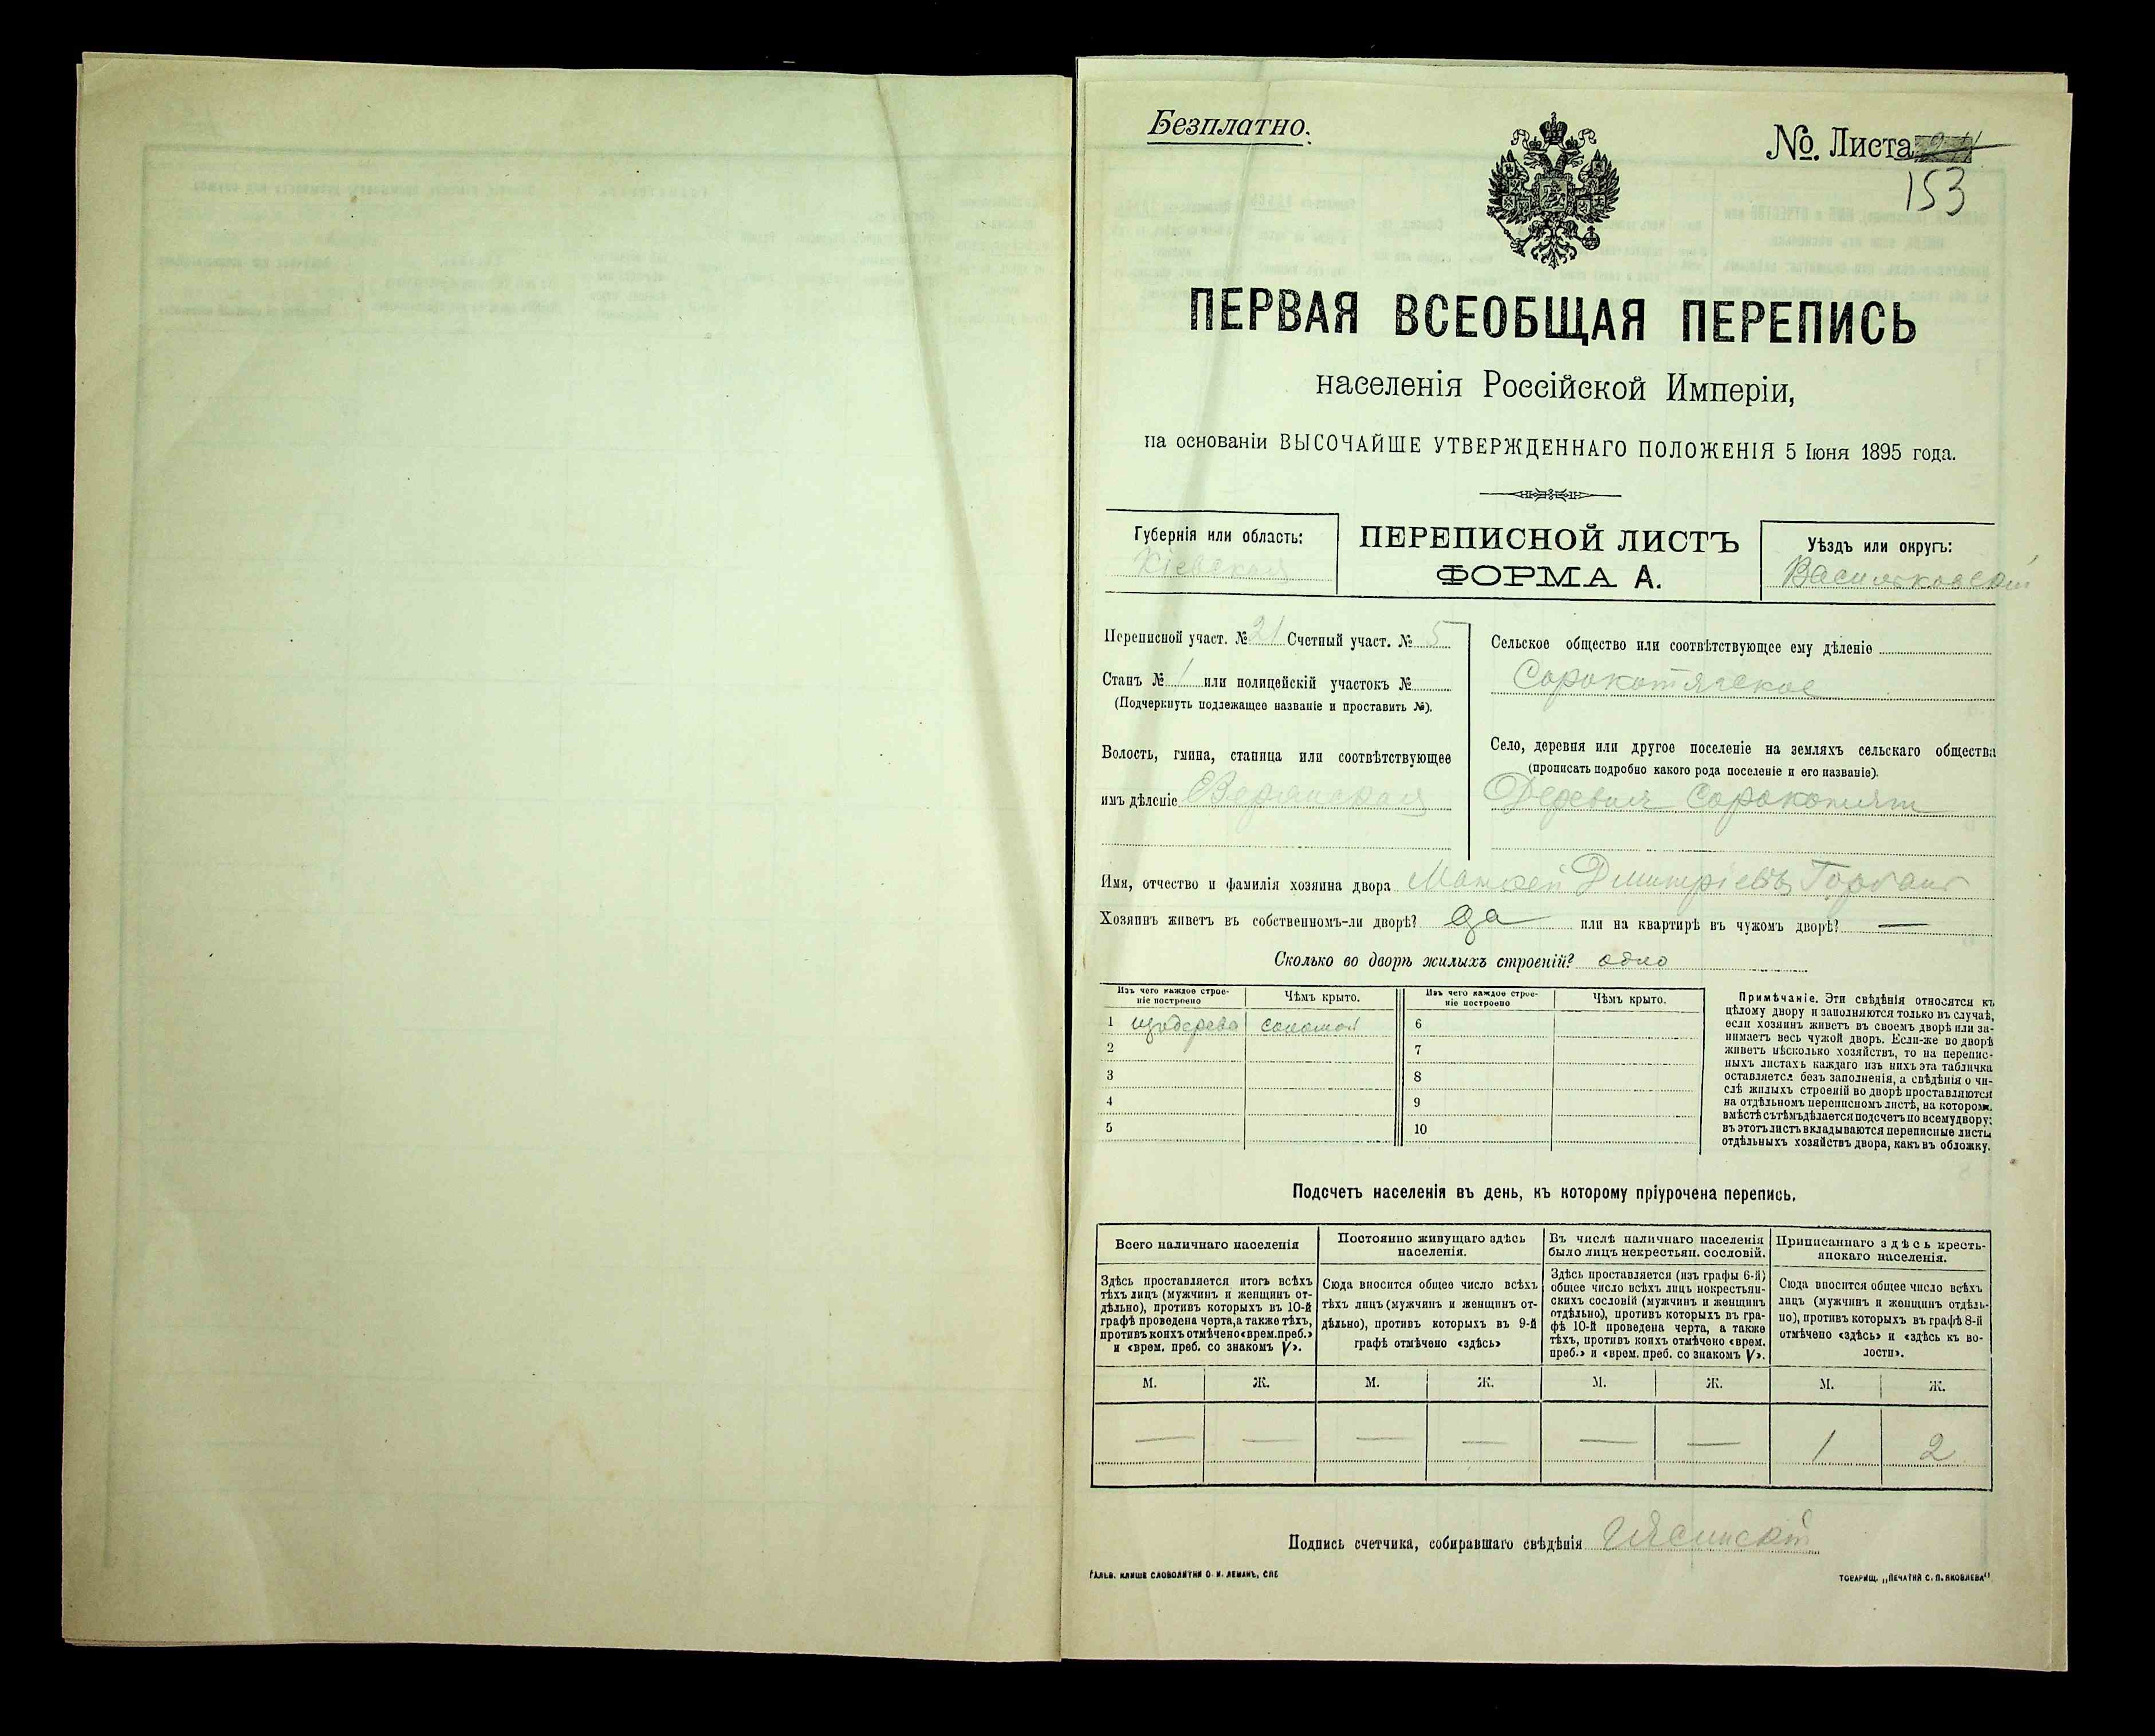 Безплатно.
№. Листа
153
ПЕРВАЯ ВСЕОБЩАЯ ПЕРЕПИСЬ
населенія Россійской Имперіи,
на основаніи ВЫСОЧАЙШЕ УТВЕРЖДЕННАГО ПОЛОЖЕНІЯ 5 Іюня 1895 года.
Губернія или область:
Кіевская
ПЕРЕПИСНОЙ ЛИСТЪ
ФОРМА А.
Уѣздъ или округъ:
Васильковскій
Переписной участ. № 21 Счетный участ. № 5
Станъ № 1 или полицейскій участокъ №
(Подчеркнуть подлежащее названіе и проставить №).
Волость, гмина, станица или соотвѣтствующее
имъ дѣленіе
Сельское общество или соотвѣтствующее ему дѣленіе
Сорокотягское
Село, деревня или другое поселеніе на земляхъ сельскаго общества
(прописать подробно какого рода поселеніе и его названіе).
Деревня
Имя, отчество и фамилія хозяина двора Дмитріевъ
Хозяинъ живетъ въ собственномъ-ли дворѣ? да или на квартирѣ въ чужомъ дворѣ? —
Сколько во дворѣ жилыхъ строеній? одно
Изъ чего каждое строе-
ніе построено
Чѣмъ крыто.
Изъ чего каждое строе-
ніе построено
Чѣмъ крыто.
1 изъ дерева соломой 6
2 7
3 8
4 9
5 10
Примѣчаніе. Эти свѣдѣнія относятся къ
цѣлому двору и заполняются только въ случаѣ,
если хозяинъ живетъ въ своемъ дворѣ или за-
нимаетъ весь чужой дворъ. Если-же во дворѣ
живетъ нѣсколько хозяйствъ, то на перепис-
ныхъ листахъ каждаго изъ нихъ эта табличка
оставляется безъ заполненія, а свѣдѣнія о чи-
слѣ жилыхъ строеній во дворѣ проставляются
на отдѣльномъ переписномъ листѣ, на котором.
вмѣстѣ съ тѣмъ дѣлается подсчетъ по всему двору;
въ этотъ листъ вкладываются переписные листы
отдѣльныхъ хозяйствъ двора, какъ въ обложку.
Подсчетъ населенія въ день, къ которому пріурочена перепись.
Всего наличнаго населенія
Постоянно живущаго здѣсь
населенія.
Въ числѣ наличнаго населенія
было лицъ некрестьян. сословій.
Приписаннаго здѣсь кресть-
янскаго населенія.
Здѣсь проставляется итогъ всѣхъ
тѣхъ лицъ (мужчинъ и женщинъ от-
дѣльно), противъ которыхъ въ 10-й
графѣ проведена черта, а также тѣхъ,
противъ коихъ отмѣчено «врем. преб.»
и «врем. преб. со знакомъ V».
Сюда вносится общее число всѣхъ
тѣхъ лицъ (мужчинъ и женщинъ от-
дѣльно), противъ которыхъ въ 9-й
графѣ отмѣчено «здѣсь»
Здѣсь проставляется (изъ графы 6-й)
общее число всѣхъ лицъ некрестьян-
скихъ сословій (мужчинъ и женщинъ
отдѣльно), противъ которыхъ въ гра-
фѣ 10-й проведена черта, а также
тѣхъ, противъ коихъ отмѣчено «врем.
преб.» и «врем. преб. со знакомъ V».
Сюда вносится общее число всѣхъ
лицъ (мужчинъ и женщинъ отдѣль-
но), противъ которыхъ въ графѣ 8-й
отмѣчено «здѣсь» и «здѣсь къ во-
лости».
М. Ж. М. Ж. М. Ж. М. Ж.
— — — — — — 1 2
Подпись счетчика, собиравшаго свѣдѣнія
ГАЛЬВ. КЛИШЕ СЛОВОЛИТНИ О. И. ЛЕМАНЪ, СПБ
ТОВАРИЩ. „ПЕЧАТНЯ С. П. ЯКОВЛЕВА"